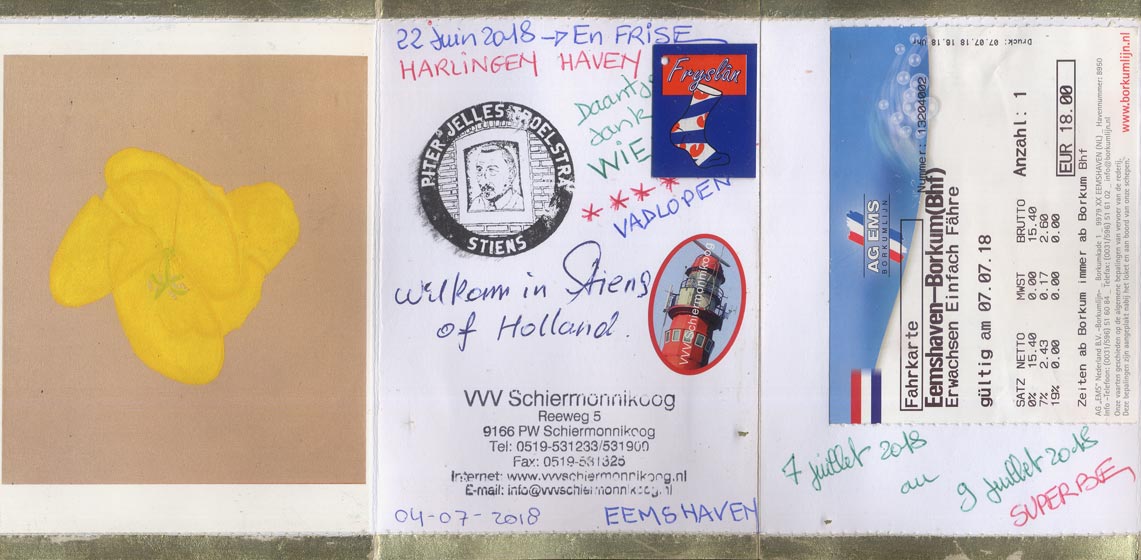 22 Juin 2018 → En FRISE
HARLINGEN HAVEN
Daantje
dank
WIE
****
VADLOPEN
Fryslân
PITER JELLES TROELSTRA
STIENS
Welkom in Stiens
of Holland.
VVV Schiermonnikoog
VVV Schiermonnikoog
Reeweg 5
9166 PW Schiermonnikoog
Tel: 0519-531233/531900
Fax: 0519-531325
Internet: www.vvvschiermonnikoog.nl
E-mail: info@vvvschiermonnikoog.nl
04-07-2018
EEMSHAVEN
AG EMS
BORKUMLIJN
Druck: 07.07.18 16.18 Uhr
Nummer: 13204002
Fahrkarte
Eemshaven-Borkum(Bhf)
Erwachsen Einfach Fähre
gültig am 07.07.18
Anzahl: 1
SATZ NETTO MWST BRUTTO
0% 15.40 0.00 15.40
7% 2.43 0.17 2.60
19% 0.00 0.00 0.00
EUR 18.00
Zeiten ab Borkum immer ab Borkum Bhf
AG „EMS" Nederland B.V. -Borkumlijn- Borkumkade 1 9979 XX EEMSHAVEN (NL) _ Havennummer: 8950
Info -Telefoon: (0031/596) 51 60 84 _ Telefax: (0031/596) 51 61 02 _ info@borkumlijn.nl
Onze vaarten geschieden op de algemene bepalingen van vervoer van de rederij.
Deze bepalingen zijn aangeplakt nabij het loket en aan boord van onze schepen.
www.borkumlijn.nl
7 juillet 2018
au
9 juillet 2018